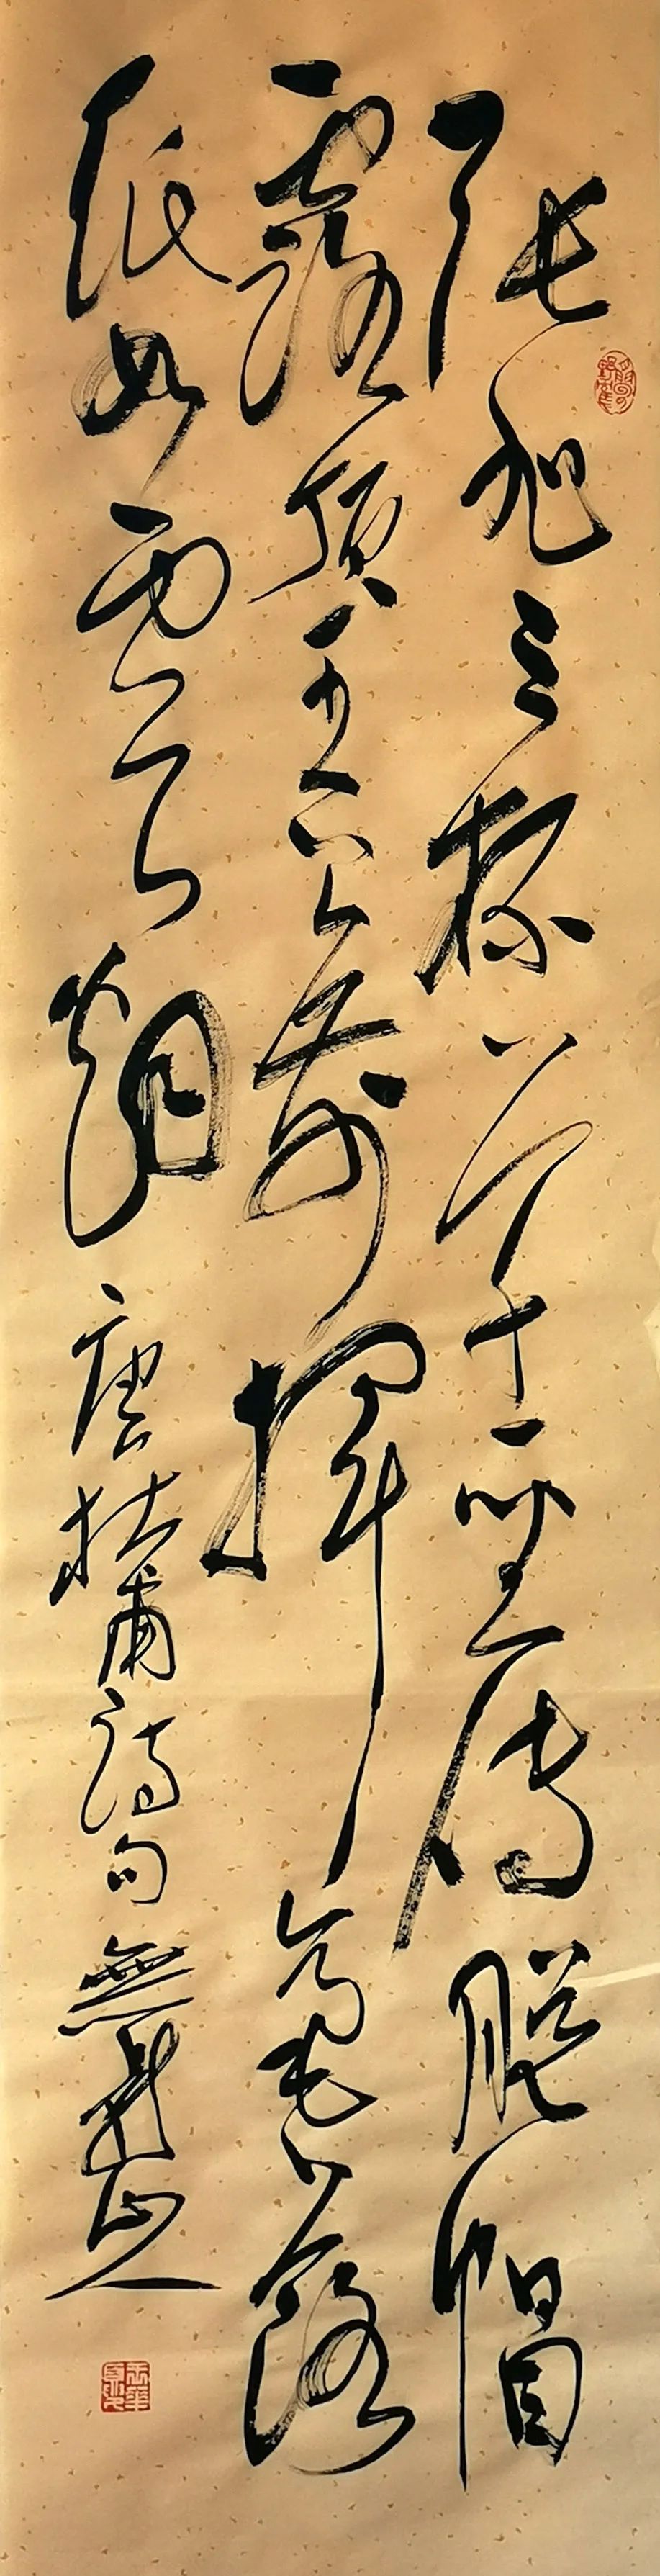 張旭三杯草聖傳脫帽
露頂王公前揮毫落
紙如雲烟 唐杜甫詩句 無